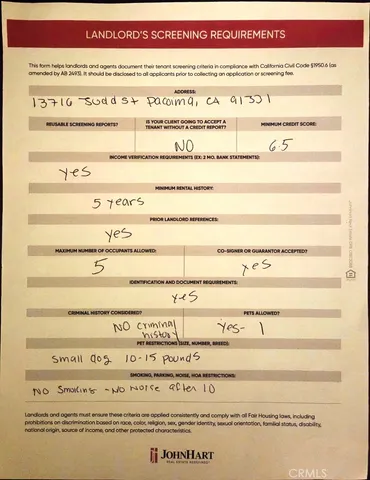 LANDLORD'S SCREENING REQUIREMENTS
This form helps landlords and agents document their tenant screening criteria in compliance with California Civil Code §1950.6 (as
amended by AB 2493). It should be disclosed to all applicants prior to collecting an application or screening fee.
ADDRESS:
13716 Judd St Pacoima, CA 91331
REUSABLE SCREENING REPORTS?
IS YOUR CLIENT GOING TO ACCEPT A
TENANT WITHOUT A CREDIT REPORT?
MINIMUM CREDIT SCORE:
NO
65
INCOME VERIFICATION REQUIREMENTS (EX: 2 MO. BANK STATEMENTS):
yes
MINIMUM RENTAL HISTORY:
5 years
PRIOR LANDLORD REFERENCES:
yes
MAXIMUM NUMBER OF OCCUPANTS ALLOWED:
CO-SIGNER OR GUARANTOR ACCEPTED?
5
yes
IDENTIFICATION AND DOCUMENT REQUIREMENTS:
yes
CRIMINAL HISTORY CONSIDERED?
PETS ALLOWED?
NO criminal
history
Yes- 1
PET RESTRICTIONS (SIZE, NUMBER, BREED):
small dog 10-15 pounds
SMOKING, PARKING, NOISE, HOA RESTRICTIONS:
NO Smoking - NO Noise after 10
Landlords and agents must ensure these criteria are applied consistently and comply with all Fair Housing laws, including
prohibitions on discrimination based on race, color, religion, sex, gender identity, sexual orientation, familial status, disability,
national origin, source of income, and other protected characteristics.
JOHNHART
REAL ESTATE REDEFINED
CRMLS